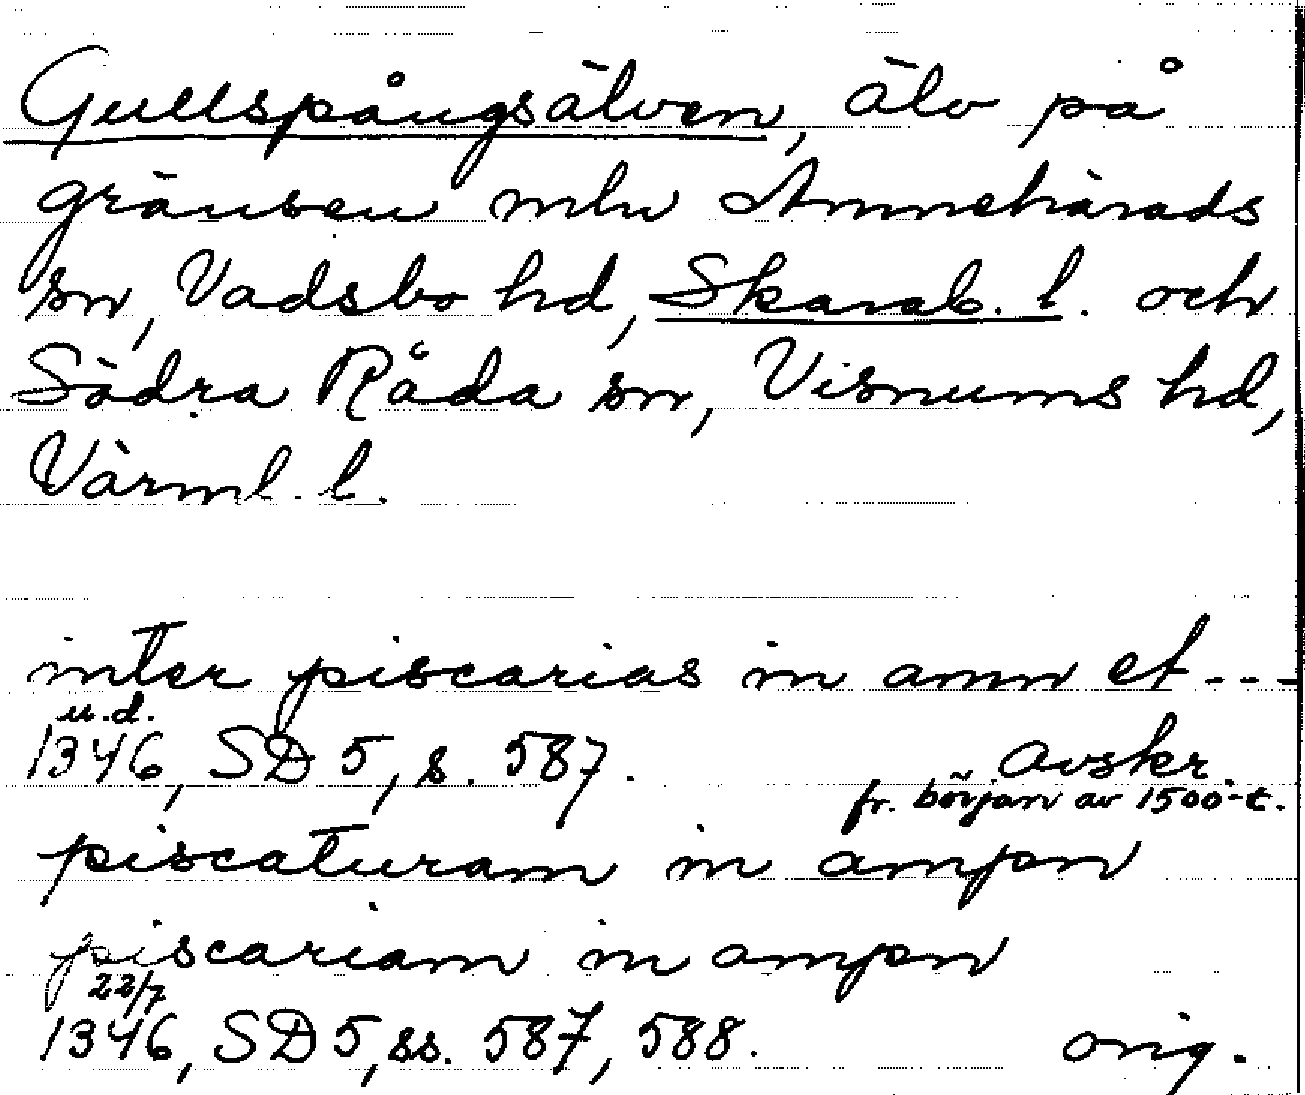 Gullspångsälven, älv på
gränsen mln Amnehärads
sn, Vadsbo hd, Skarab. l. och
Södra Råda sn, Visnums hd,
Värml. l.
inter piscarias in amn et ---
u.d.
1346, SD 5, s. 587. avskr.
fr. början av 1500-t.
piscaturam in ampn
piscariam in ampn
22/7
1346, SD 5, ss. 587, 588. orig.